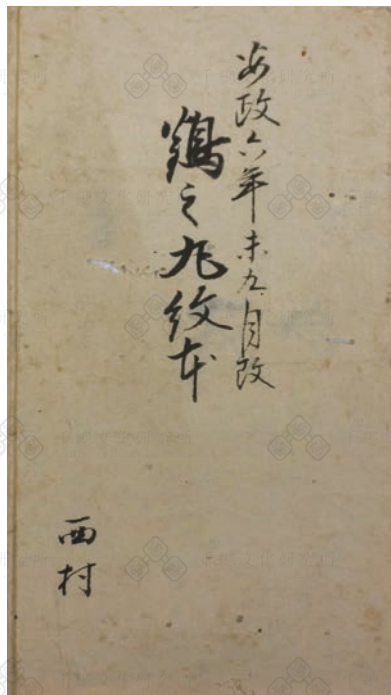 安政六年未九月改
鶏之丸紋本
西村